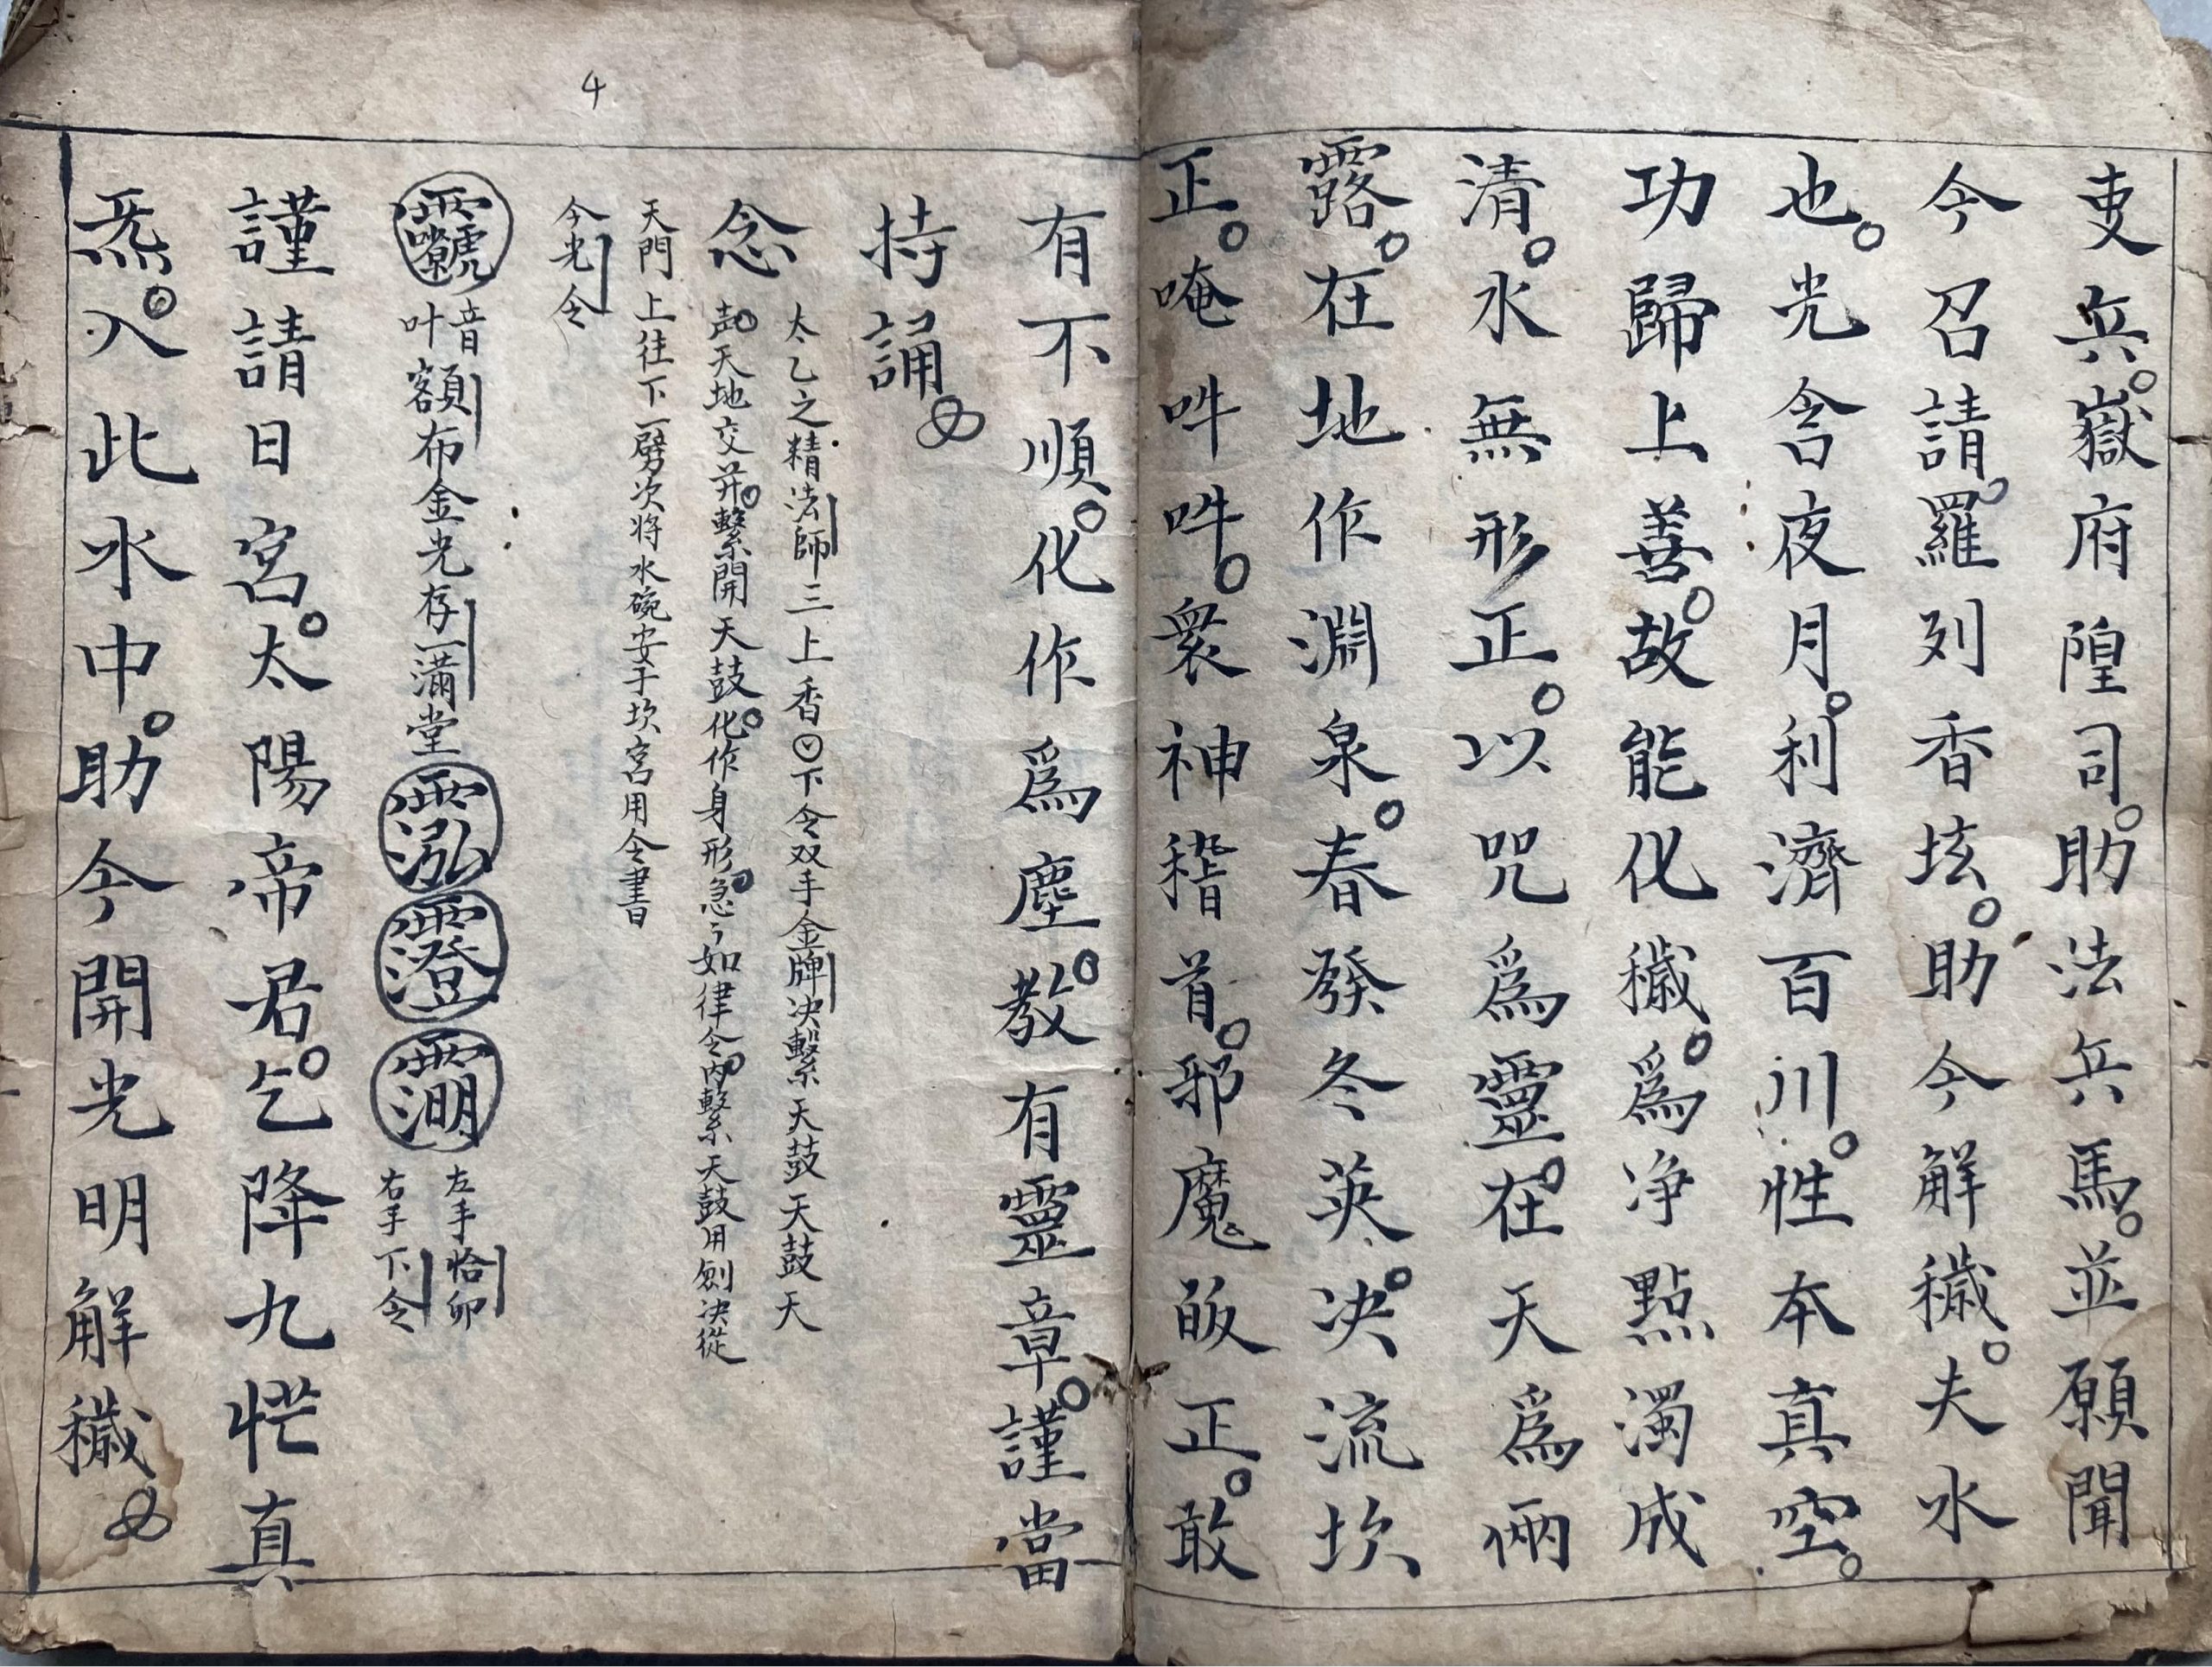 吏兵。嶽府隍司。助法兵馬。並願聞
今召請。羅列香垓。助今解穢。夫水
也。光含夜月。利濟百川。性本真空。
功歸上善。故能化穢。爲净點濁成
清。水無形正。以咒爲靈。在天爲㒳
露。在地作淵泉。春發冬英。决流坎
正。唵吽吽。衆神稽首。邪魔皈正。敢
有不順。化作爲塵。教有靈章。謹當
持誦
念
太乙之精法師三上香下令双手金牌决繫天鼓天鼓天
声。天地交并。繫開天鼓。化作身形。急〻如律令。内繫天鼓用劍决從
天門上往下一劈次将水碗安于坎宮用令書
今光令
音
叶額布金光存一滿堂
左手恰卯
右手下令
謹請日宮。太陽帝君。乞降九炁真
炁。入此水中。助今開光明解穢
4